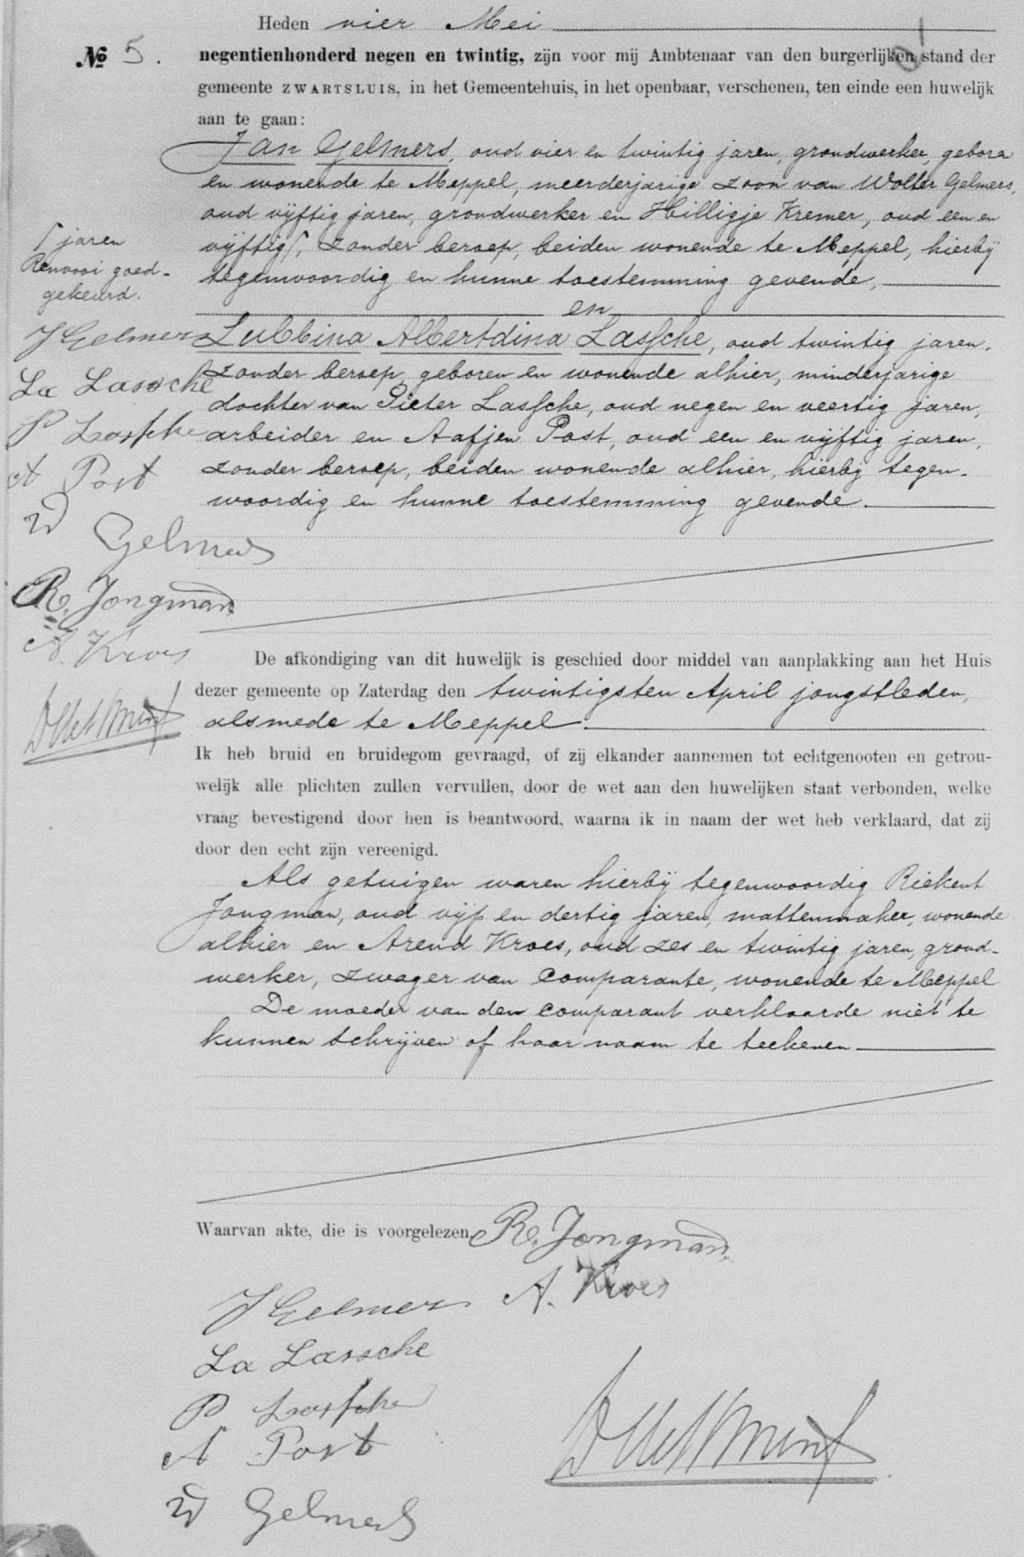 Heden vier Mei
№ 5.
negentienhonderd negen en twintig, zijn voor mij Ambtenaar van den burgerlijken stand der
gemeente ZWARTSLUIS, in het Gemeentehuis, in het openbaar, verschenen, ten einde een huwelijk
aan te gaan:
Jan Gelmers, oud vier en twintig jaren, grondwerker, geboren
en wonende te Meppel, meerderjarige zoon van Wolter Gelmers,
oud vijftig jaren, grondwerker en Hilligje Kremer, oud een en
vijftig⌈, zonder beroep, beiden wonende te Meppel, hierbij
tegenwoordig en hunne toestemming gevende,
en
Lubbina Albertdina Lassche, oud twintig jaren,
zonder beroep, geboren en wonende alhier, minderjarige
dochter van Pieter Lassche, oud negen en veertig jaren,
arbeider en Aafjen Post, oud een en vijftig jaren,
zonder beroep, beiden wonende alhier, hierbij tegen-
woordig en hunne toestemming gevende.
⌈ jaren
Renvooi goed-
gekeurd.
J Gelmers
La Lassche
P Lassche
A Post
W Gelmers
R. Jongman
A. Kroes
De afkondiging van dit huwelijk is geschied door middel van aanplakking aan het Huis
dezer gemeente op Zaterdag den twintigsten April jongstleden,
alsmede te Meppel
Ik heb bruid en bruidegom gevraagd, of zij elkander aannemen tot echtgenooten en getrou-
welijk alle plichten zullen vervullen, door de wet aan den huwelijken staat verbonden, welke
vraag bevestigend door hen is beantwoord, waarna ik in naam der wet heb verklaard, dat zij
door den echt zijn vereenigd.
Als getuigen waren hierbij tegenwoordig Riekent
Jongman, oud vijf en dertig jaren, mattenmaker, wonende
alhier en Arend Kroes, oud zes en twintig jaren, grond-
werker, zwager van comparante, wonende te Meppel
De moeder van den comparant verklaarde niet te
kunnen schrijven of haar naam te teekenen
Waarvan akte, die is voorgelezen, R. Jongman
A. Kroes
J Gelmers
La Lassche
P Lassche
A Post
W Gelmers